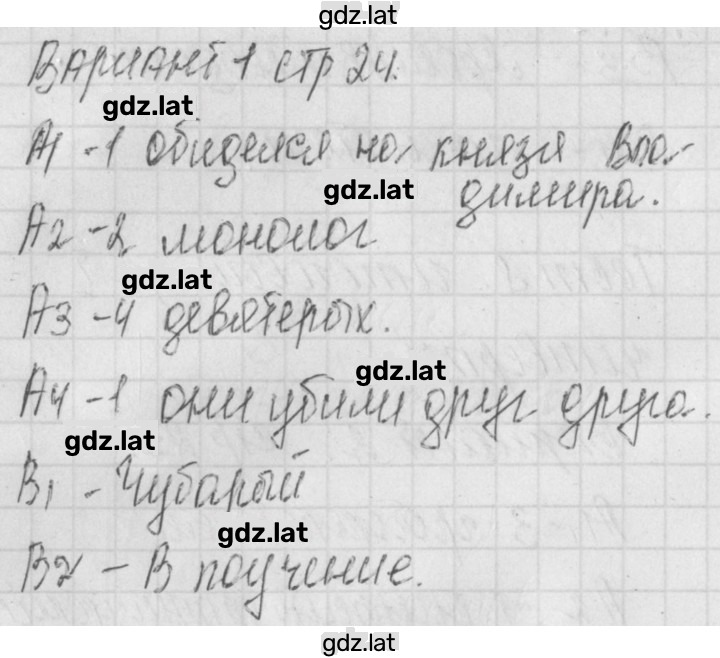 gdz.lat
Вариант 1 стр 24.
gdz.lat
А1 - 1 обиделся на князя Вла-
gdz.lat
димира.
А2 - 2 монолог
gdz.lat
А3 - 4 девятерых.
gdz.lat
А4 - 1 они убили друг друга.
gdz.lat
В1 - Чубарый
gdz.lat
В2 - В поучение.
gdz.lat